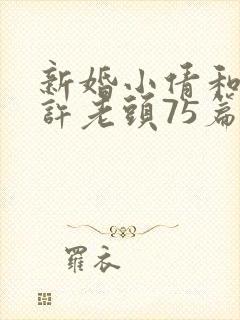 新婚小倩和
許老頭75篇
羅衣